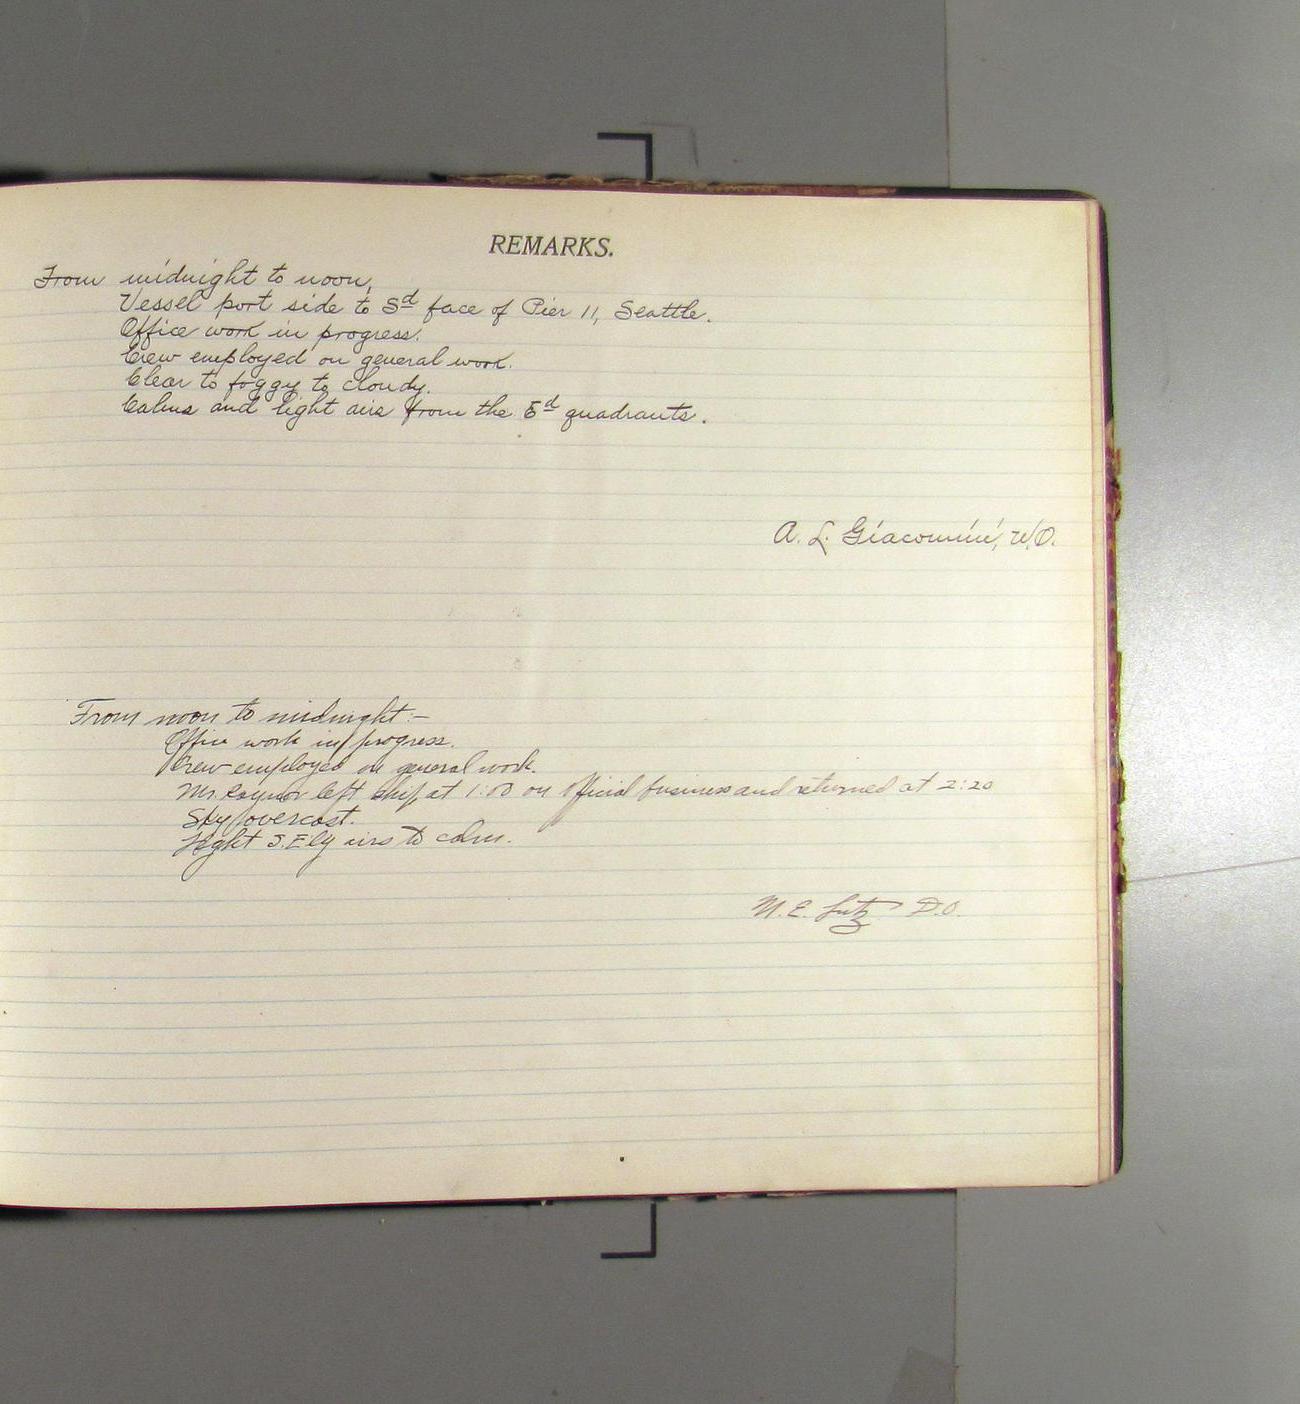 REMARKS.
From midnight to noon,
Vessel port side to Sd face of Pier 11, Seattle.
Office work in progress.
Crew employed on general work.
Clear to foggy to cloudy.
Calms and light airs from the Ed quadrants.
A. L. Giacomini, W.O.
From noon to midnight:-
Office work in progress.
Crew employed on general work.
Mr Raynor left ship at 1:00 on official business and returned at 2:20
Sky overcast.
Light S.E'ly airs to calm.
M. E. Lutz D.O.